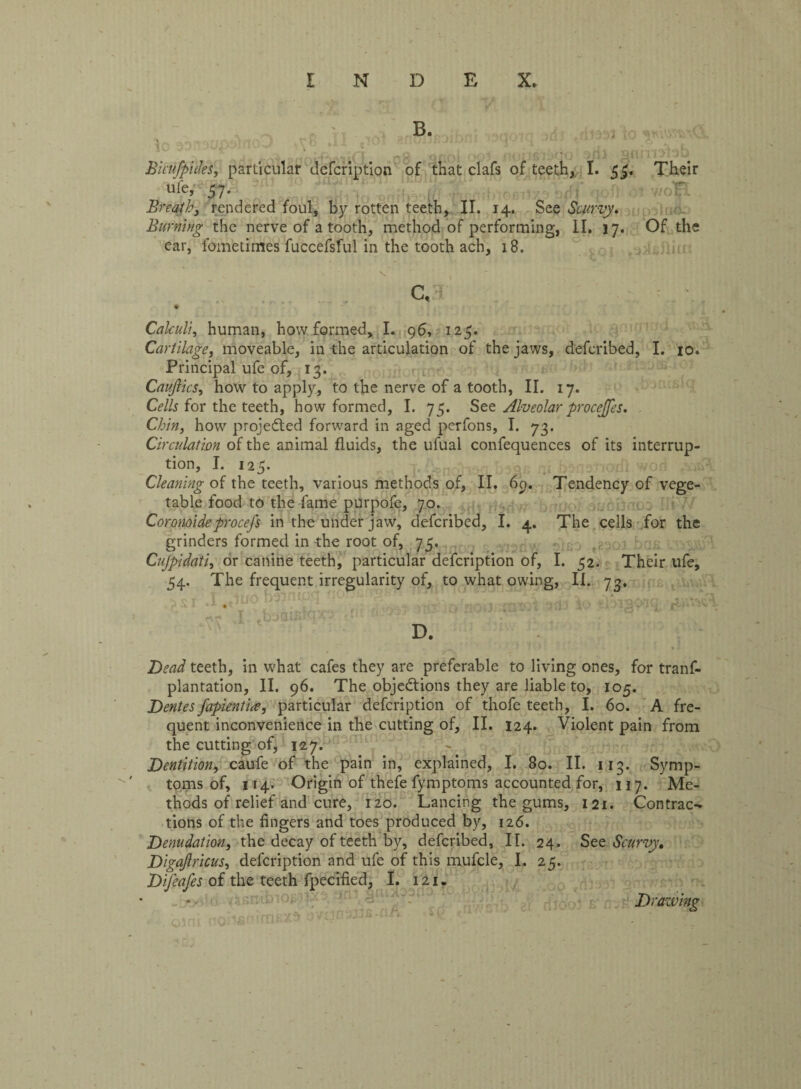 I N D E X.
B.
Bicuſpides, particular deſcription of that claſs of teeth, I. 55. Their
uſe, 57.
Breath, rendered foul, by rotten teeth, II. 14. See Scurvy.
Burning the nerve of a tooth, method of performing, II. 17. Of the
ear, ſometimes ſucceſsful in the tooth ach, 18.
C.
Calculi, human, how formed, I. 96, 125.
Cartilage, moveable, in the articulation of the jaws, deſcribed, I. 10.
Principal uſe of, 13.
Cauſtics, how to apply, to the nerve of a tooth, II. 17.
Cells for the teeth, how formed, I. 75. See Alveolar proceſſes.
Chin, how projected forward in aged perſons, I. 73.
Circulation of the animal fluids, the uſual conſequences of its interrup-
tion, I. 125.
Cleaning of the teeth, various methods of, II. 69. Tendency of vege-
table food to the ſame purpoſe, 70.
Coronoide proceſs in the under jaw, deſcribed, I. 4. The cells for the
grinders formed in the root of, 75.
Cuſpidati, or canine teeth, particular deſcription of, I. 52. Their uſe,
54. The frequent irregularity of, to what owing, II. 73.
D.
Dead teeth, in what caſes they are preferable to living ones, for tranſ-
plantation, II. 96. The objections they are liable to, 105.
Dentes ſapientiæ, particular deſcription of thoſe teeth, I. 60. A fre-
quent inconvenience in the cutting of, II. 124. Violent pain from
the cutting of, 127.
Dentition, cauſe of the pain in, explained, I. 80. II. 113. Symp-
toms of, 114. Origin of theſe ſymptoms accounted for, 117. Me-
thods of relief and cure, 120. Lancing the gums, 121. Contrac-
tions of the fingers and toes produced by, 126.
Denudation, the decay of teeth by, deſcribed, II. 24. See Scurvy.
Digaſtricus, deſcription and uſe of this muſcle, I. 25.
Diſeaſes of the teeth ſpecified, I. 121.
Drawing